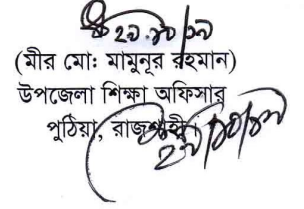 (মীর মো: মামুনূর রহমান)
উপজেলা শিক্ষা অফিসার
পুঠিয়া, রাজশাহী।